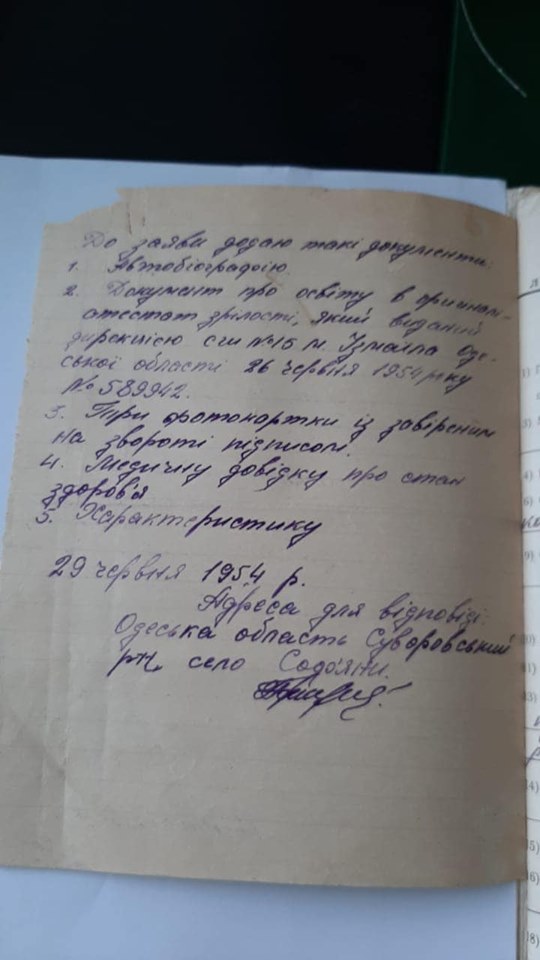 До заяви додаю такі документи:
1. Автобіографію.
2. Документ про освіту в оригіналі –
атестат зрілості, який виданий
дирекцією сш №16 м. Ізмаїла Оде-
ської області 26 червня 1954 року
№ 589942.
3. Три фотокартки із завіреним
на звороті підписом.
4. Медичну довідку про стан
здоров'я
5. Характеристику
29 червня 1954 р.
Адреса для відповіді:
Одеська область Суворовський
рн, село